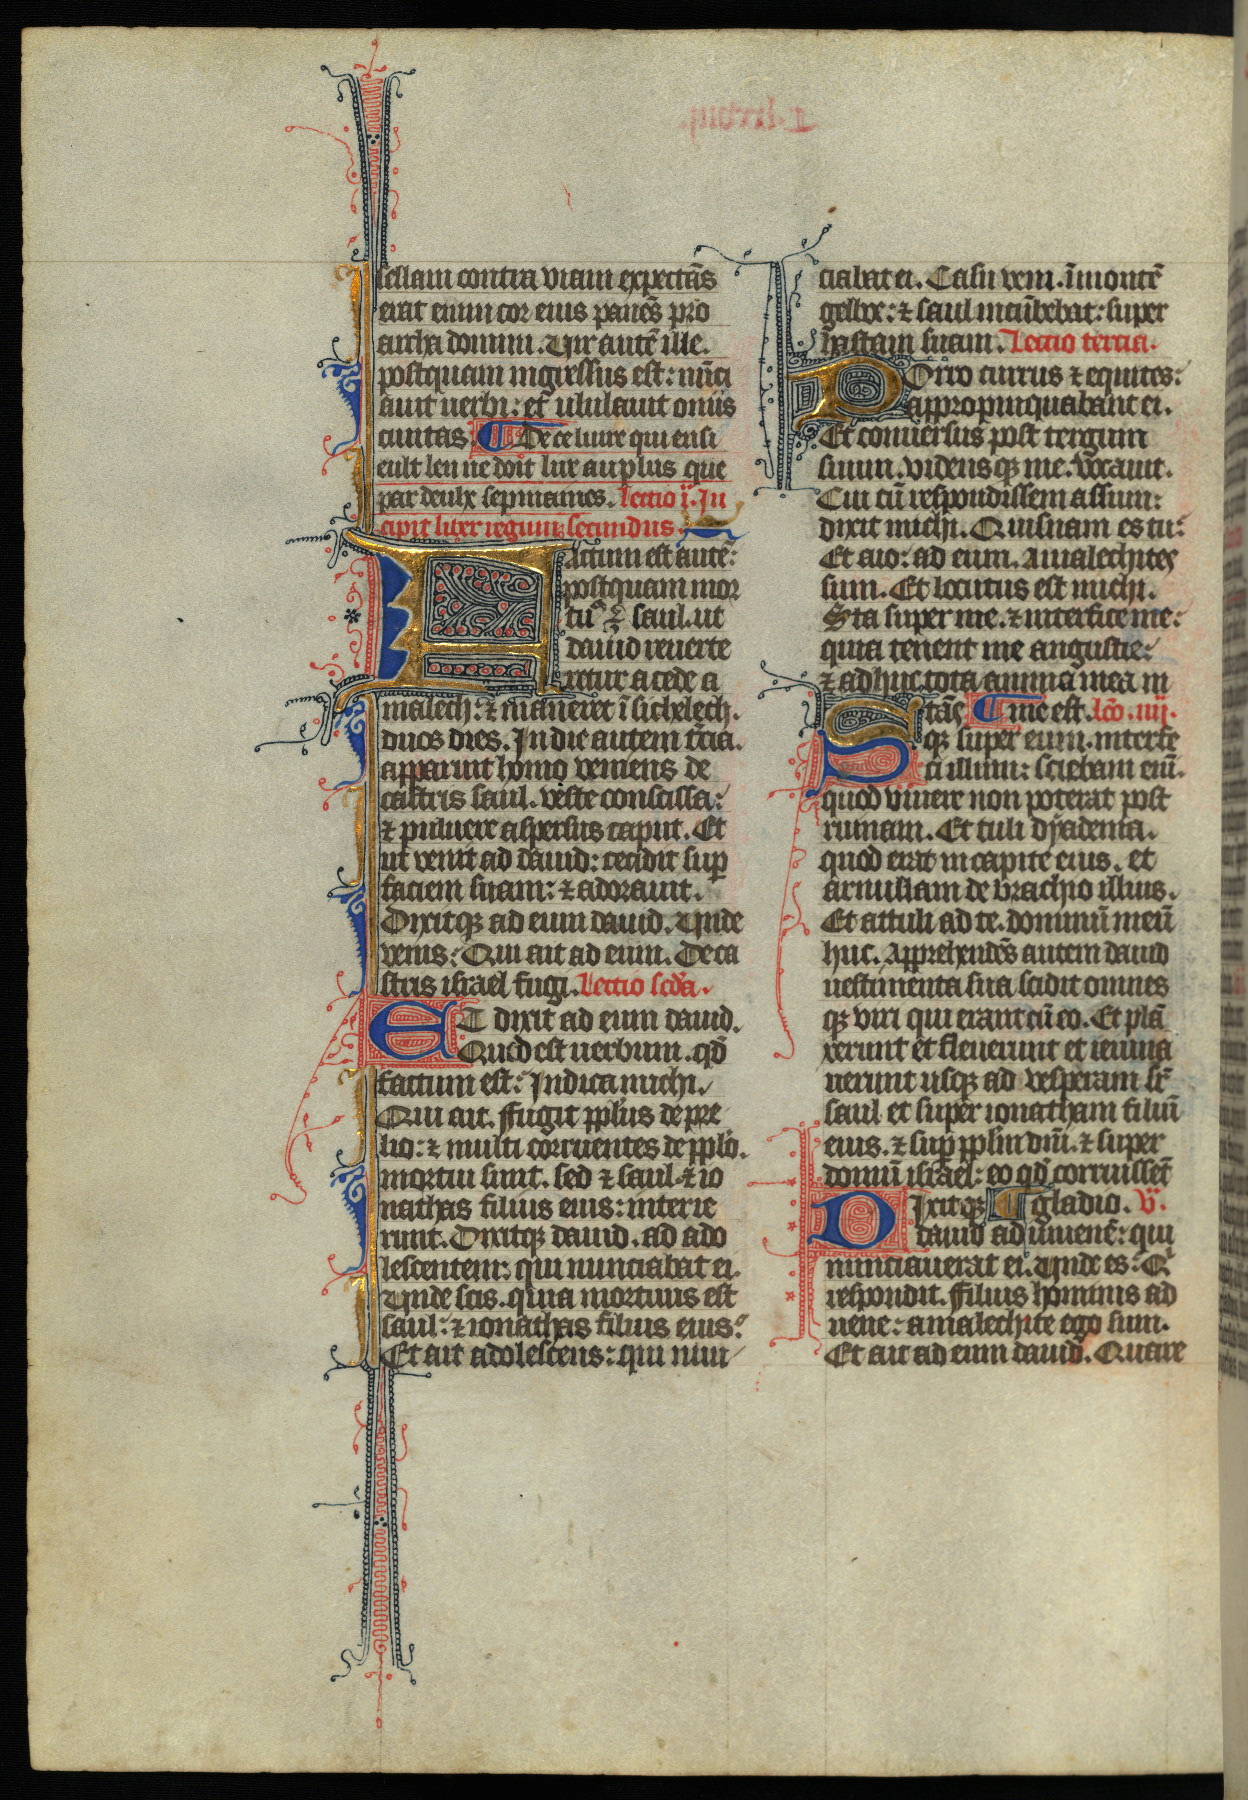 sellam contra viam expectās
erat enim cor eius pauēs pro
archa domini. Vir autē ille.
postquam ingressus est: nūci
auit uerbi: et ululauit omīs
ciuitas. De ce liure qui ensi
eult len ne doit lire au plus que
par deulx sepmaines. Lectio i. In
cipit liber regum secundus.
Factum est autē:
postquam mor
tuꝰ ē saul. ut
dauid reuerte
retur a cede a
malech: ⁊ maneret ī sichelech.
duos dies. In die autem t̄cia.
apparuit homo veniens de
castris saul. veste conscissa:
⁊ puluere aspersus caput. Et
ut venit ad dauid: cecidit suꝑ
faciem suam: ⁊ adorauit.
Dixitqꝫ ad eum dauid. Vnde
venis: Qui ait ad eum. De ca
stris israel fugi. Lectio scd̄a.
ET dixit ad eum dauid.
Quod est uerbum. qd̄
factum est: Indica michi.
Qui ait. ffugit pplūs de pre
lio: ⁊ multi corruentes de pplō.
mortui sunt. sed ⁊ saul. ⁊ io
nathas filius eius: interie
runt. Dixitqꝫ dauid. ad ado
lescentem: qui nunciabat ei.
Vnde scis. quia mortuus est
saul: ⁊ ionathas filius eius:
Et ait adolescens: qui nun
ciabat ei. Casu veni. ī montē
gelboe: ⁊ saul incūbebat: super
hastam suam. Lectio tercia.
Porro currus ⁊ equites:
appropinquabant ei.
Et conuersus post tergum
suum. vidensqꝫ me. vocauit.
Cui cū respondissem assum:
dixit michi. Quisnam es tu:
Et aio: ad eum. Amalechites
sum. Et locutus est michi.
Sta super me. ⁊ interfice me:
quia tenent me angustie:
⁊ adhuc tota anima mea in
Stāsqꝫ super eum. interfe
me est. lc̄o. iiij.
ci illum: sciebam enī.
quod viuere non poterat post
ruinam. Et tuli dyadema.
quod erat in capite eius. et
armillam de brachio illius.
Et attuli ad te. dominū meū
huc. Apprehendēs autem dauid
uestimenta sua scidit omnes
qꝫ viri qui erant cū eo. Et plā
xerunt et fleuerunt et ieiuna
uerunt usqꝫ ad vesperam sr̄
saul et super ionatham filiū
eius. ⁊ suꝑ pplm̄ dn̄i. ⁊ super
domū israel: eo qd̄ corruissēt
Dixitqꝫ gladio. v.
dauid ad iuuenē: qui
nunciauerat ei. Vnde es: Q
respondit. ffilius hominis ad
uene: amalechite ego sum.
Et ait ad eum dauid. Quare